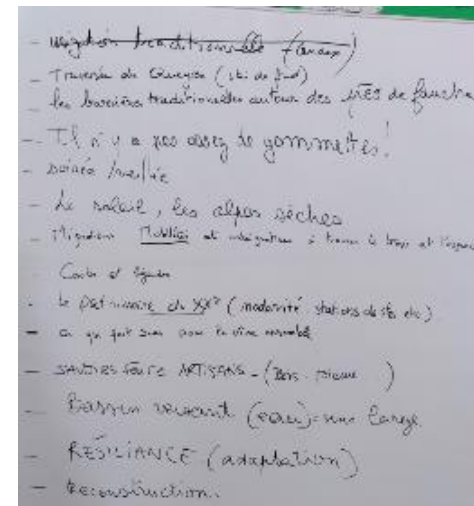 - irrigation traditionnelle (canaux)
- Traversée du Queyras (ski de fond)
- les barrières traditionnelles autour des prés de fauche
- Il n'y a pas assez de gommettes !
- soirée / veillée
- Le soleil, les alpes sèches
- Migrations Mobilités et intégration à travers le temps et l'espace
Conte et légendes
- Le patrimoine du XXe (modernité stations de ski etc)
- ce qui fait sens pour le vivre ensemble
- SAVOIRS FAIRE ARTISANS - (Bois - pierre )
- Bassin versant (eau) = sens large
- RÉSILIANCE (adaptation)
- Reconstruction.